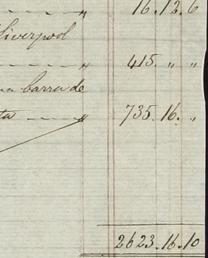 " 16.12.6
Liverpool
" 415. " "
barra de
ta " 735.16. "
2623.16.10